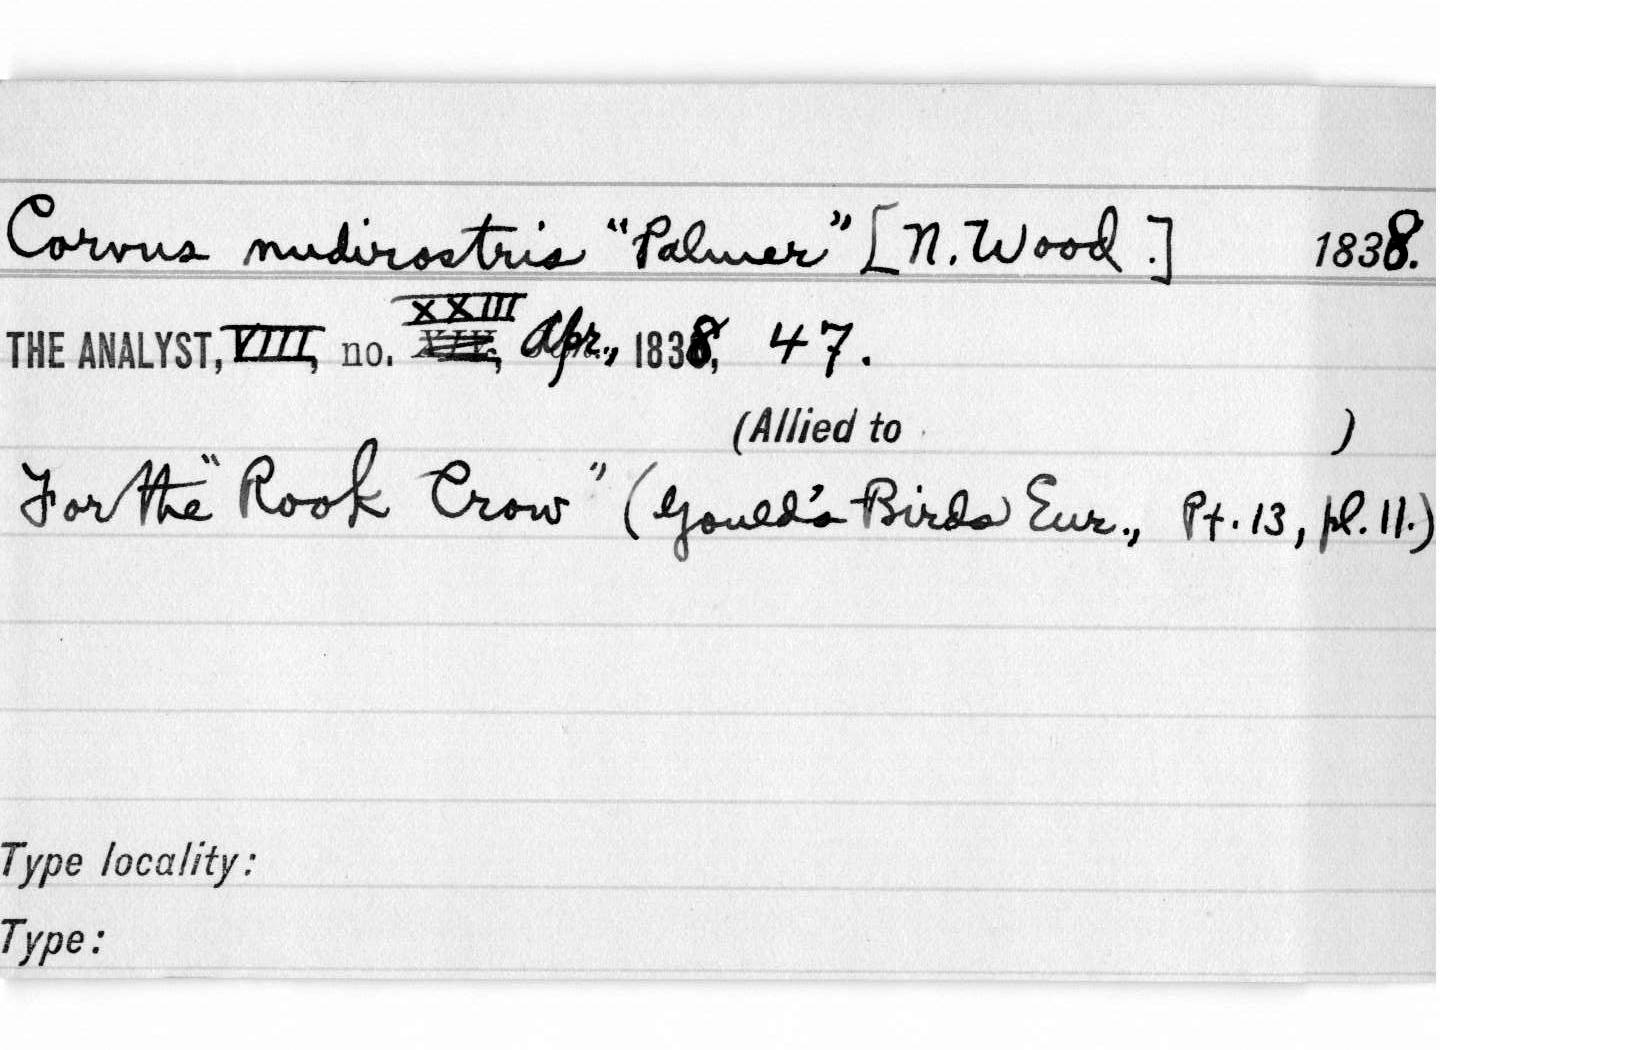 Corvus nudirostris "Palmer" [N. Wood.] 1838.
XXIII
THE ANALYST, VIII, no. XIV, Apr., 1838, 47.
(Allied to )
For the "Rook Crow" (Gould's Birds Eur., Pt. 13, pl. 11.)
Type locality:
Type: